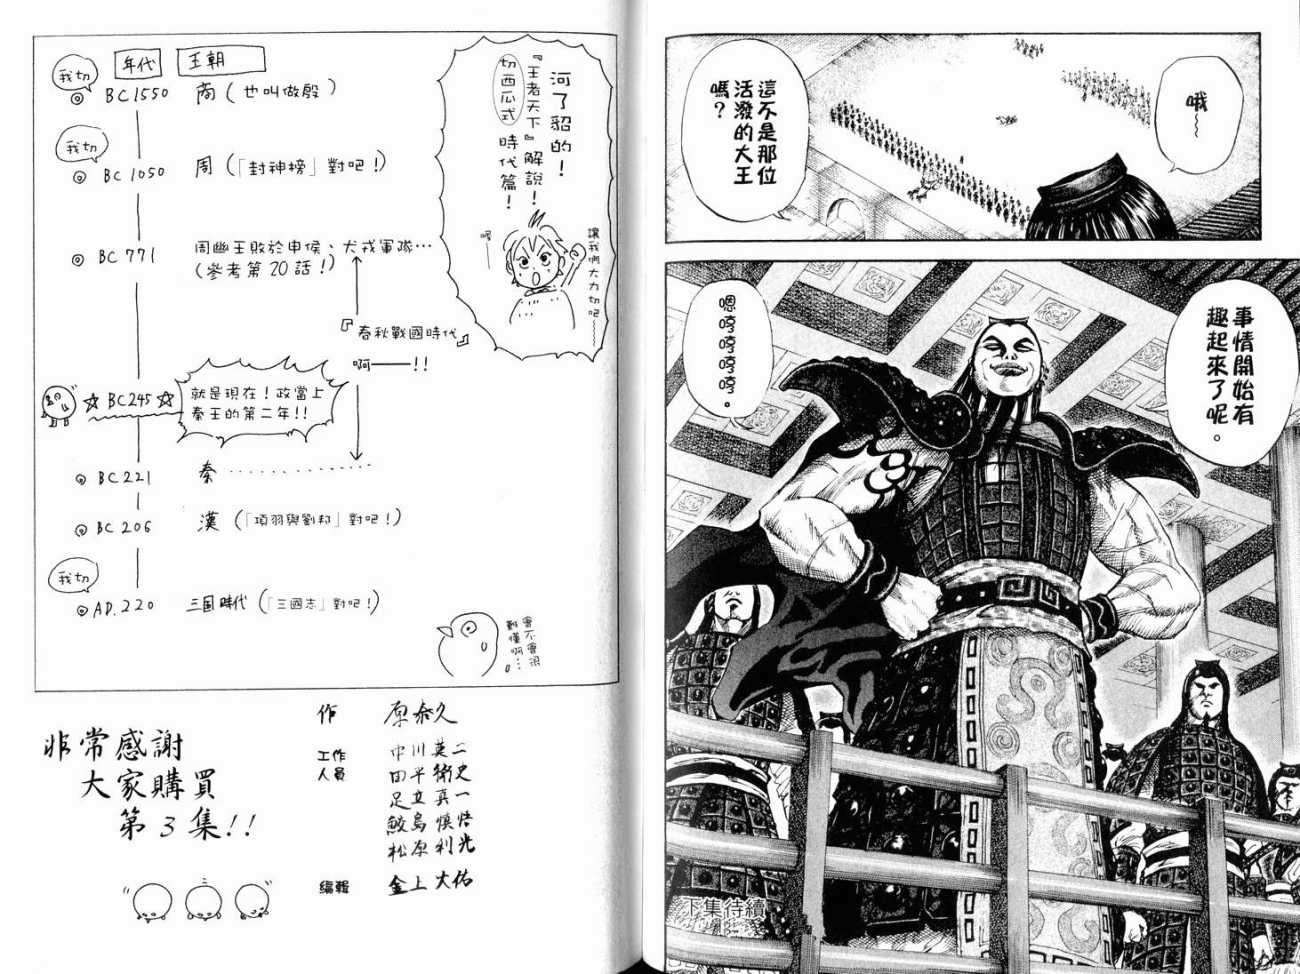 哦～
這不是那位
活潑的大王
嗎？
事情開始有
趣起來了呢。
嗯哼哼哼哼。
下集待續
河了貂的！
『王者天下』解說！
切西瓜式
時代篇！
讓我們大力切吧～
喔—
年代
王朝
我切
BC1550
商（也叫做殷）
我切
BC1050
周（「封神榜」對吧！）
BC771
周幽王敗於申侯、犬戎軍隊…
（參考第20話！）
『春秋戰國時代』
啊——!!
☆BC245☆
就是現在！政當上
秦王的第二年!!
BC221
秦
BC206
漢（「項羽與劉邦」對吧！）
我切
AD.220
三国時代（「三國志」對吧！）
會不會很
難懂啊…
非常感謝
大家購買
第3集!!
作 原泰久
工作
人員
中川英二
田平衛史
足立真一
鮫島慎悟
松原利光
編輯 金上大佑